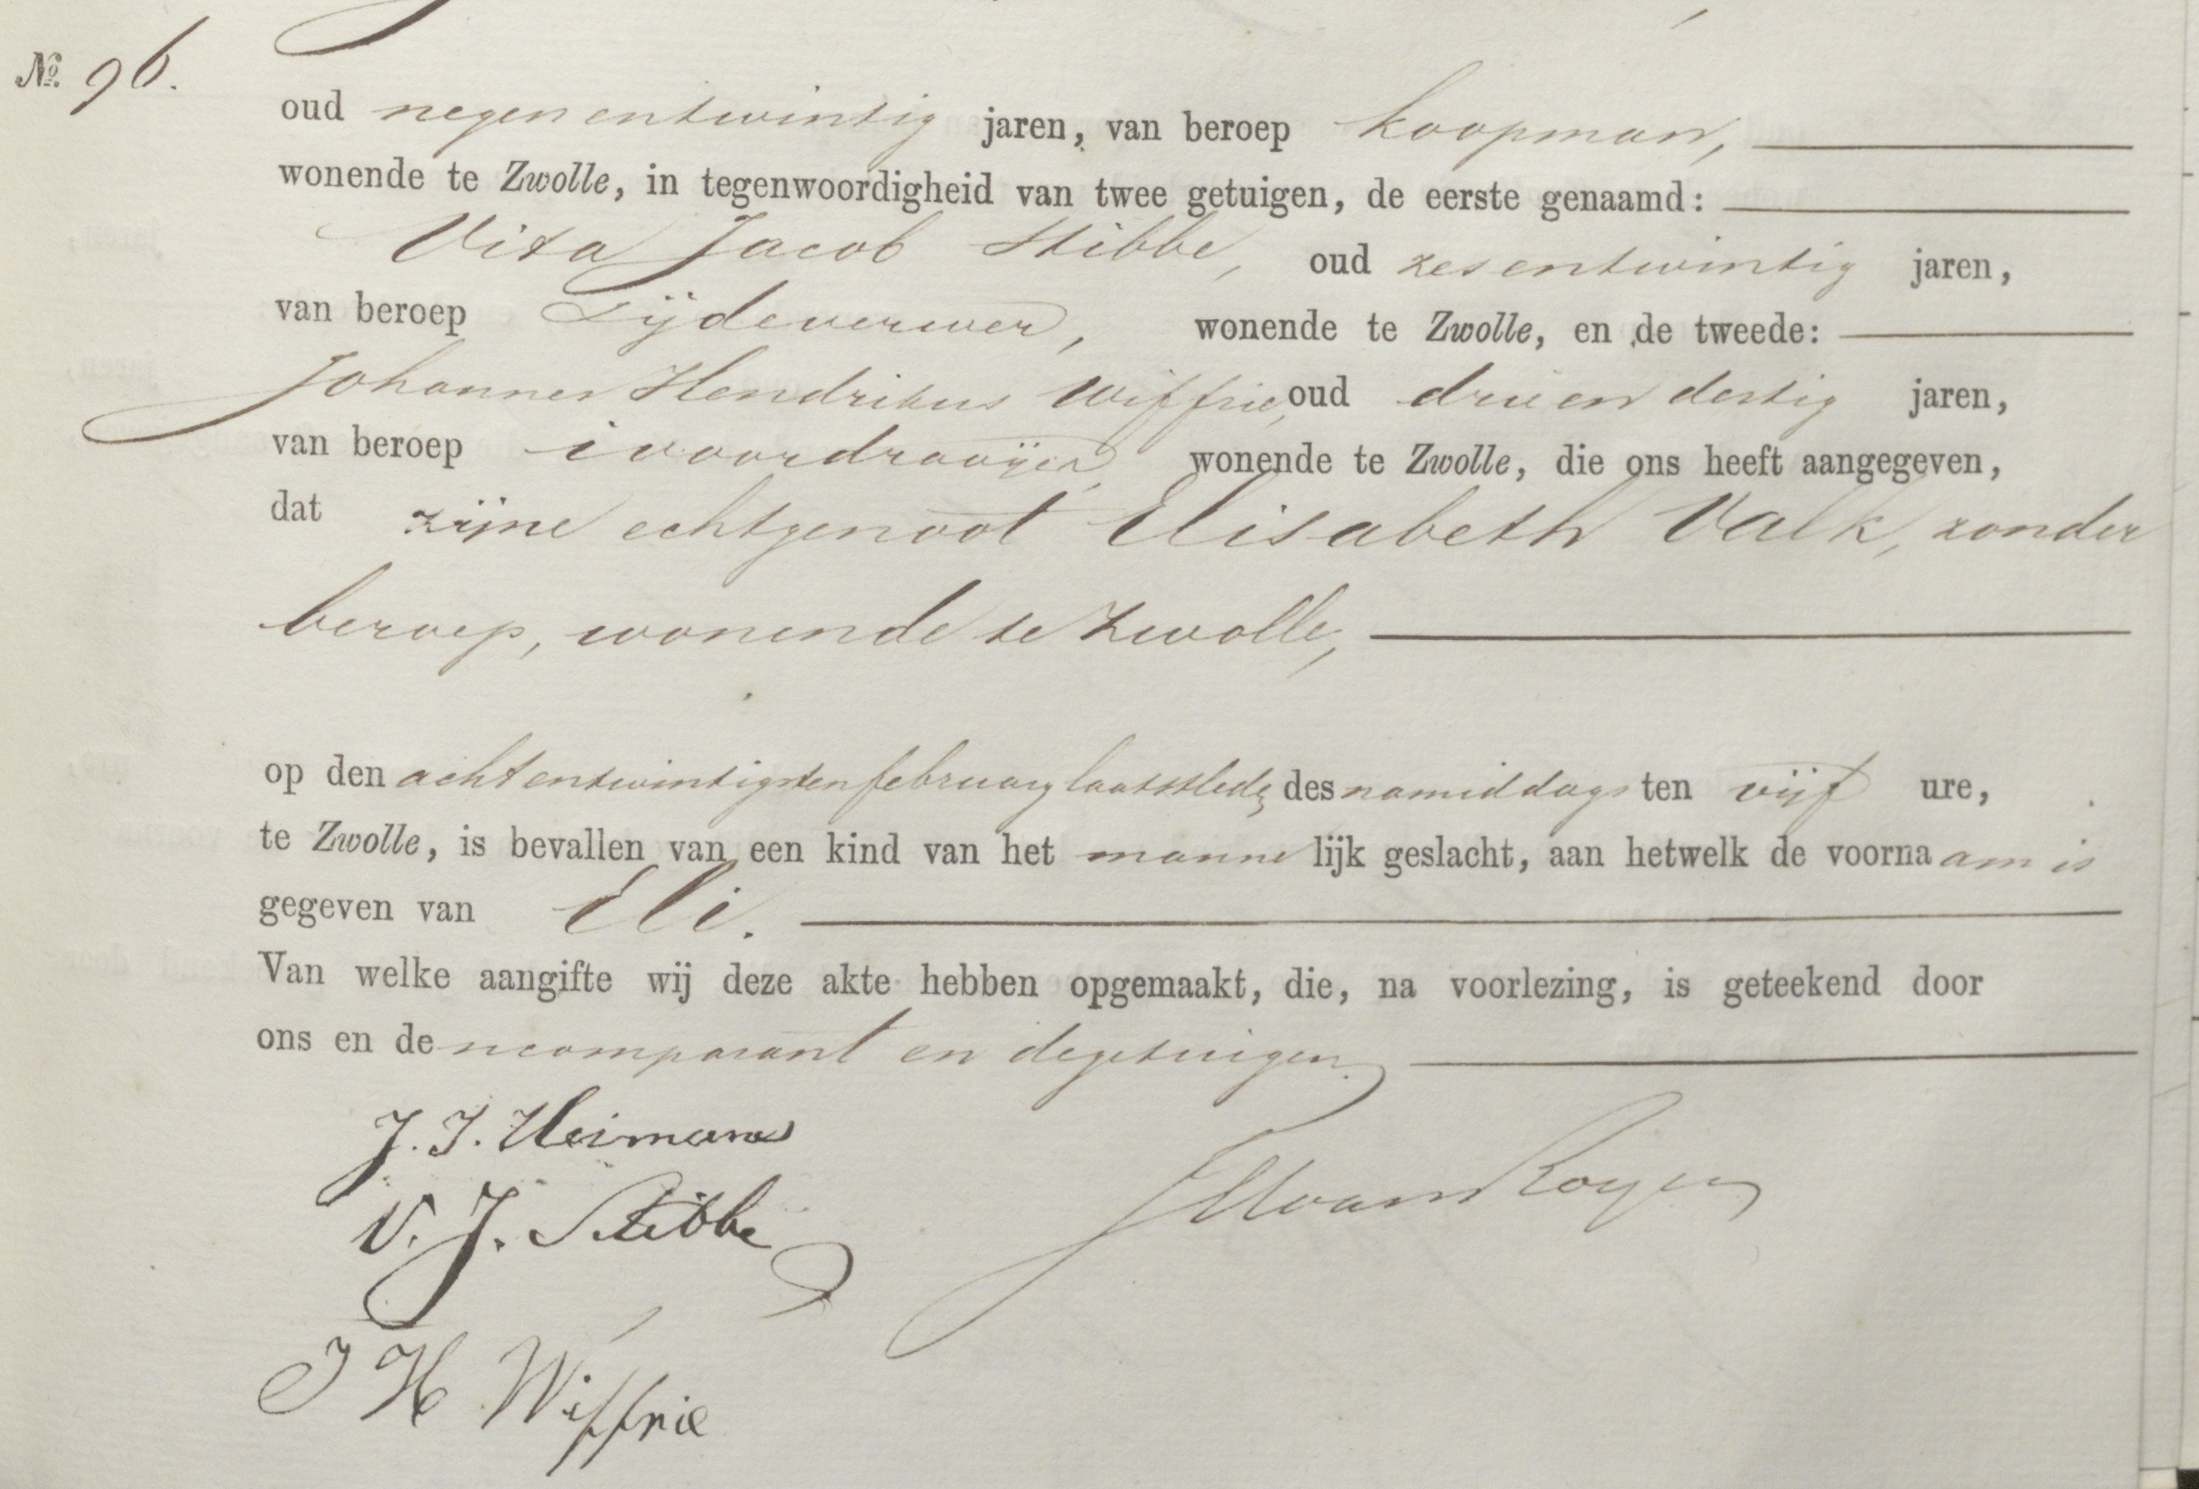 №. 96.
oud negen en twintig jaren, van beroep koopman,
wonende te Zwolle, in tegenwoordigheid van twee getuigen, de eerste genaamd:
Vita Jacob Stibbe, oud zes en twintig jaren,
van beroep Zijdeverwer, wonende te Zwolle, en de tweede:
Johannes Hendrikus Wiffrie, oud drie en dertig jaren,
van beroep ivoordraaijer, wonende te Zwolle, die ons heeft aangegeven,
dat zijne echtgenoot Elisabeth Valk, zonder
beroep, wonende te Zwolle,
op den achtentwintigsten february laatstleden des namiddags ten vijf ure,
te Zwolle, is bevallen van een kind van het mannelijk geslacht, aan hetwelk de voornaam is
gegeven van Eli.
Van welke aangifte wij deze akte hebben opgemaakt, die, na voorlezing, is geteekend door
ons en den comparant en de getuigen.
J. J. Heimans
van Royen
V. J. Stibbe
J H Wiffrie